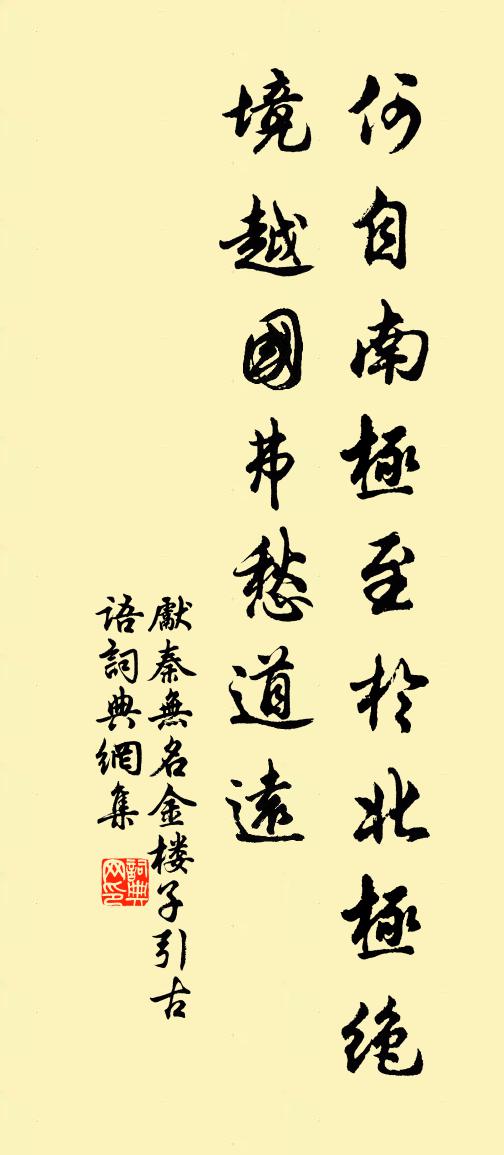 何自南極至於北極絶
境越國弗愁道遠
獻秦無名金楼子引古
語詞典網集
詞典
网印